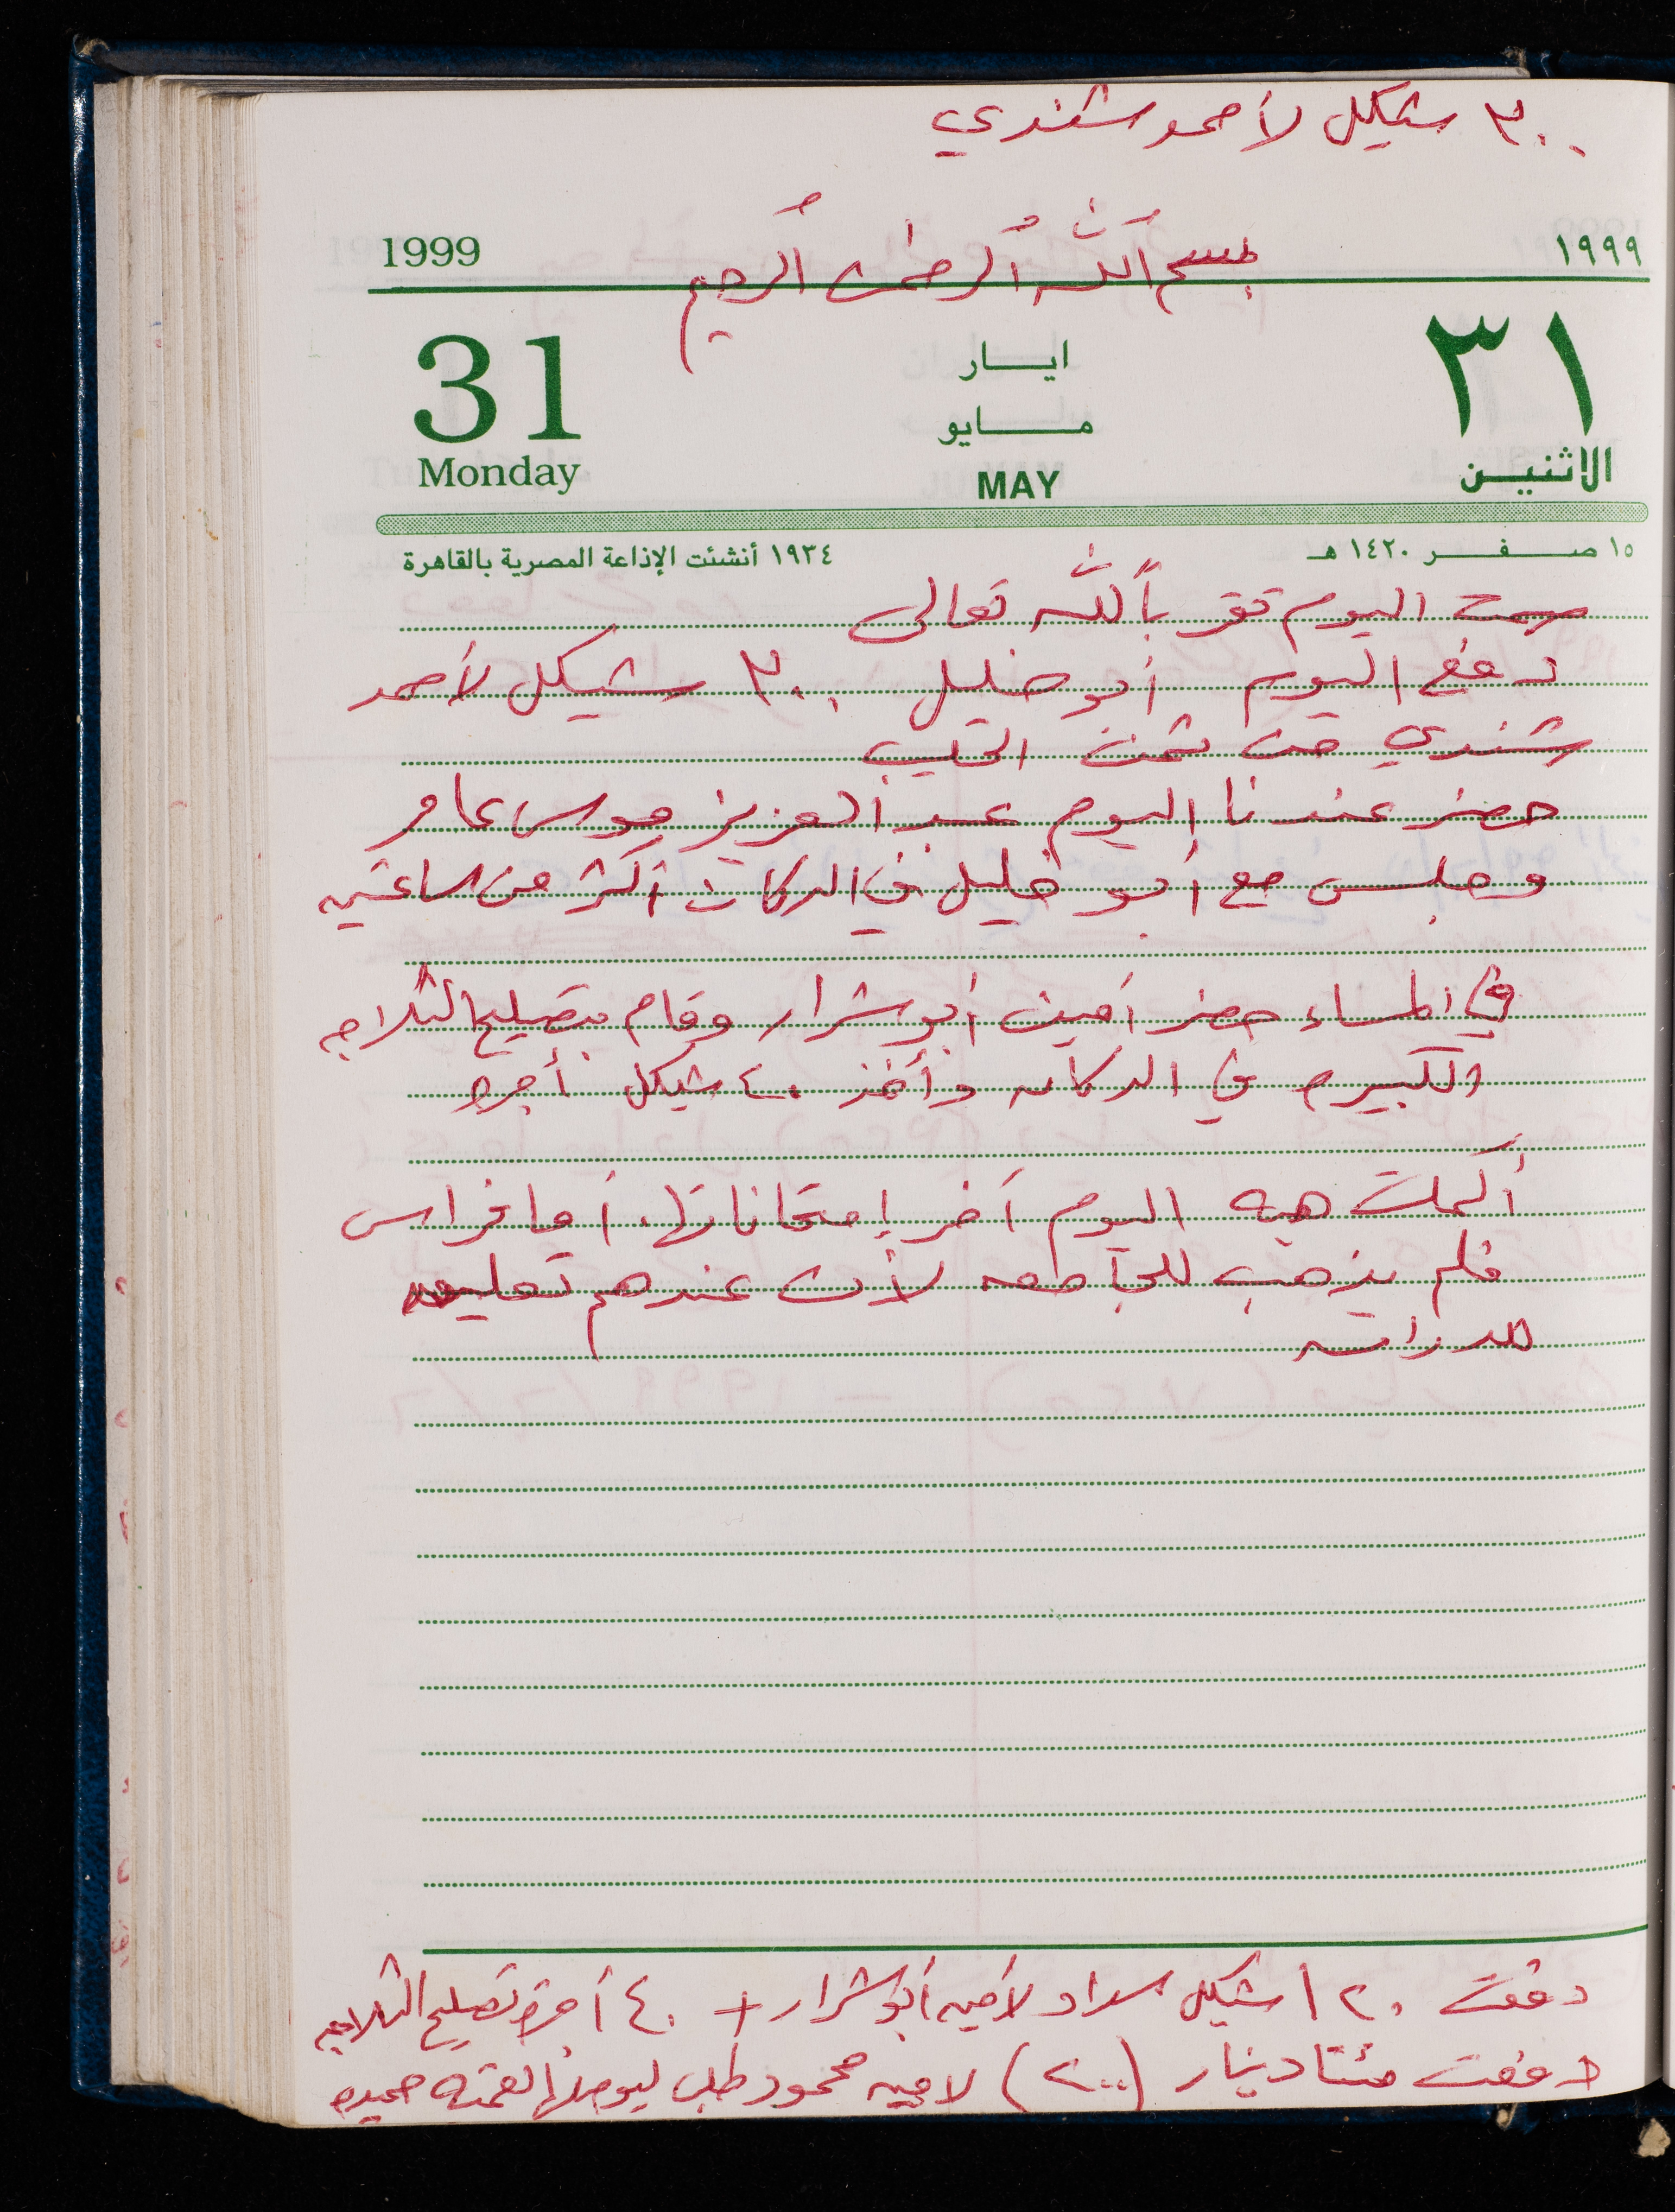 ٣٠٠ شيكل لأحمد شندي
بسم الله الرحمن الرحيم
1999
١٩٩٩
31
ايـــار
٣١
مـــايو
Monday
MAY
الاثنيـن
١٥ صـفـر ١٤٢٠ هـ
١٩٣٤ أنشئت الإذاعة المصرية بالقاهرة
صح اليوم بالله تعالى
دفع اليوم أبو خليل ٣٠٠ شيكل لأحمد
شندي من ثمن الحليب
حضر عندنا اليوم عبد العزيز موسى عامر
وجلس مع أبو خليل في الدكان أكثر من ساعتين
في المساء حضر أمين أبو شرار وقام بتصليح الثلاجه
الكبيره في الدكان وأخذ ٤٠ شيكل أجره
أكملت هبه اليوم آخر إمتحاناتها. أما فراس
فلم يذهب للجامعه لأن عندهم تعليق
للدراسه
دفعت ١٢٠ شيكل سداد لأمين أبو شرار + ٤٠ أجرة تصليح الثلاجه
دفعت مئتا دينار (٢٠٠) لامين محمود طلب ليوصلها لعمته حميده